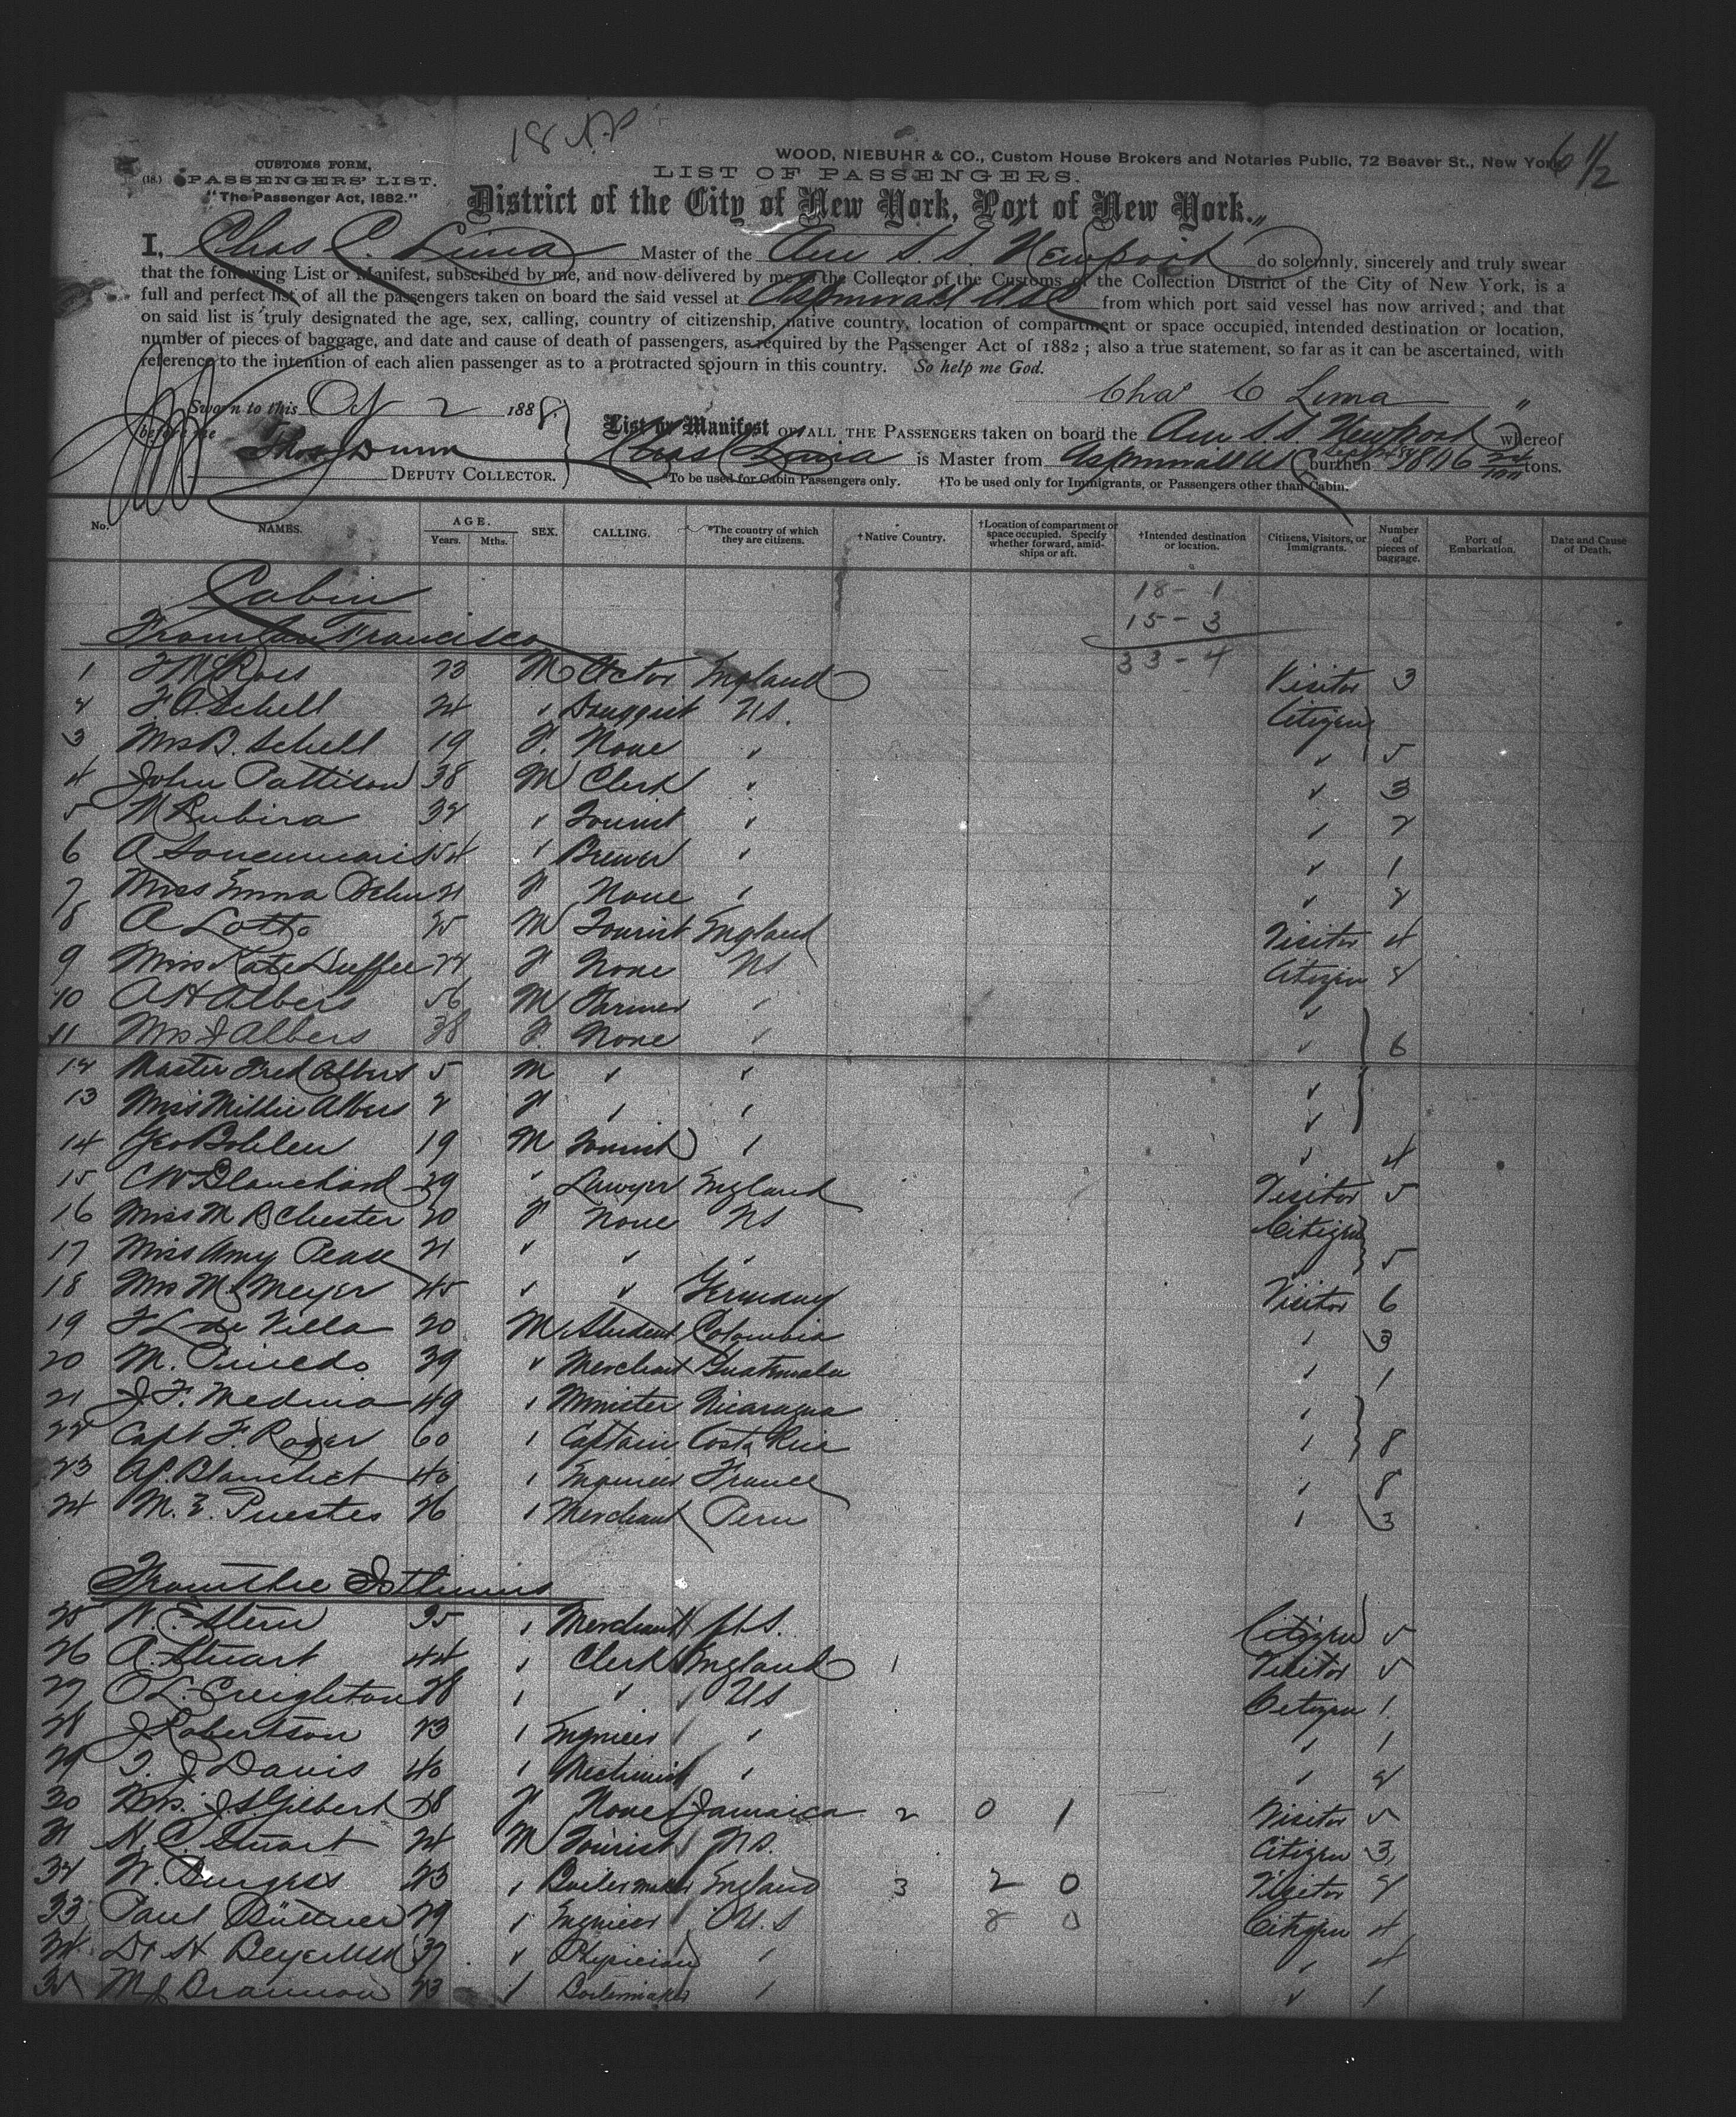 18 N.P
6 1/2
WOOD, NIEBUHR & CO., Custom House Brokers and Notaries Public, 72 Beaver St., New York
CUSTOMS FORM,
(18.) PASSENGERS' LIST.
"The Passenger Act, 1882."
LIST OF PASSENGERS.
District of the City of New York, Port of New York.
I, Chas C. Lima Master of the Am S.S. Newport do solemnly, sincerely and truly swear
that the following List or Manifest, subscribed by me, and now delivered by me to the Collector of the Customs of the Collection District of the City of New York, is a
full and perfect list of all the passengers taken on board the said vessel at Aspinwall USC from which port said vessel has now arrived; and that
on said list is truly designated the age, sex, calling, country of citizenship, native country, location of compartment or space occupied, intended destination or location,
number of pieces of baggage, and date and cause of death of passengers, as required by the Passenger Act of 1882; also a true statement, so far as it can be ascertained, with
reference to the intention of each alien passenger as to a protracted sojourn in this country. So help me God.
Chas C Lima
Sworn to this Oct 2 1888
before me
Thos Dunn
DEPUTY COLLECTOR.
List or Manifest OF ALL THE PASSENGERS taken on board the Am S.S. Newport whereof
Chas C Lima is Master from Aspinwall USC burthen tons.
*To be used for Cabin Passengers only. †To be used only for Immigrants, or Passengers other than Cabin.
No. NAMES. AGE. Years. Mths. SEX. CALLING. *The country of which they are citizens. †Native Country. †Location of compartment or space occupied. Specify whether forward, amidships or aft. †Intended destination or location. Citizens, Visitors, or Immigrants. Number of pieces of baggage. Port of Embarkation. Date and Cause of Death.
Cabin
18 - 1
15 - 3
33 - 4
From San Francisco
1 Ross 23 M Actor England Visitor 3
2 F. O. Schell 24 " Druggist U.S. Citizen
3 Mrs B. Schell 19 F. None " " 5
4 John Pattison 38 M Clerk " " 3
5 N Rubira 32 " Tourist " " 2
6 A 54 " Brewer " " 1
7 Miss Emma Dehn 21 F None " " 2
8 A Lotto 25 M Tourist England Visitor 4
9 Miss Kate Duffee 24 F None US Citizen 2
10 A H Albers 56 M Farmer " "
11 Mrs J Albers 38 F. None " " 6
12 Master Fred Albers 5 M " " "
13 Miss Millie Albers 2 F " " "
14 Geo Bohlen 19 M Tourist " " 4
15 C W Blanchard 29 " Lawyer England Visitor 5
16 Miss M B Chester 20 F None US Citizen
17 Miss Amy Pease 21 " " " 5
18 Mrs M Meyer 45 " " Germany Visitor 6
19 F L de Villa 20 M Student Colombia " 3
20 M. Pinedo 39 " Merchant Guatemala " 1
21 J. F. Medina 49 " Minister Nicaragua "
22 Capt F. Roger 60 " Captain Costa Rica " 8
23 A. Blanchet 40 " Engineer France " 8
24 M. E. Puestes 26 " Merchant Peru " 3
From the Isthmus
25 N. E. Stern 35 " Merchant U.S. Citizen 5
26 A. Stuart 44 " Clerk England 1 Visitor 5
27 O L. Creighton 28 " " US Citizen 1
28 J Robertson 23 " Engineer " " 1
29 T. J. Davis 40 " Machinist " " 2
30 Mrs. J. S. Gilbert 28 F None Jamaica 2 0 1 Visitor 5
31 H. C. Stuart 24 M Tourist U.S. Citizen 3
32 W. Burgess 23 " Boilermaker England 3 2 0 Visitor 2
33 Paul Büttner 29 " Engineer U.S 8 0 Citizen 4
34 Dr H Beyer USN 37 " Physician " " 4
35 M J Brannon 23 " Boilermaker " " 1